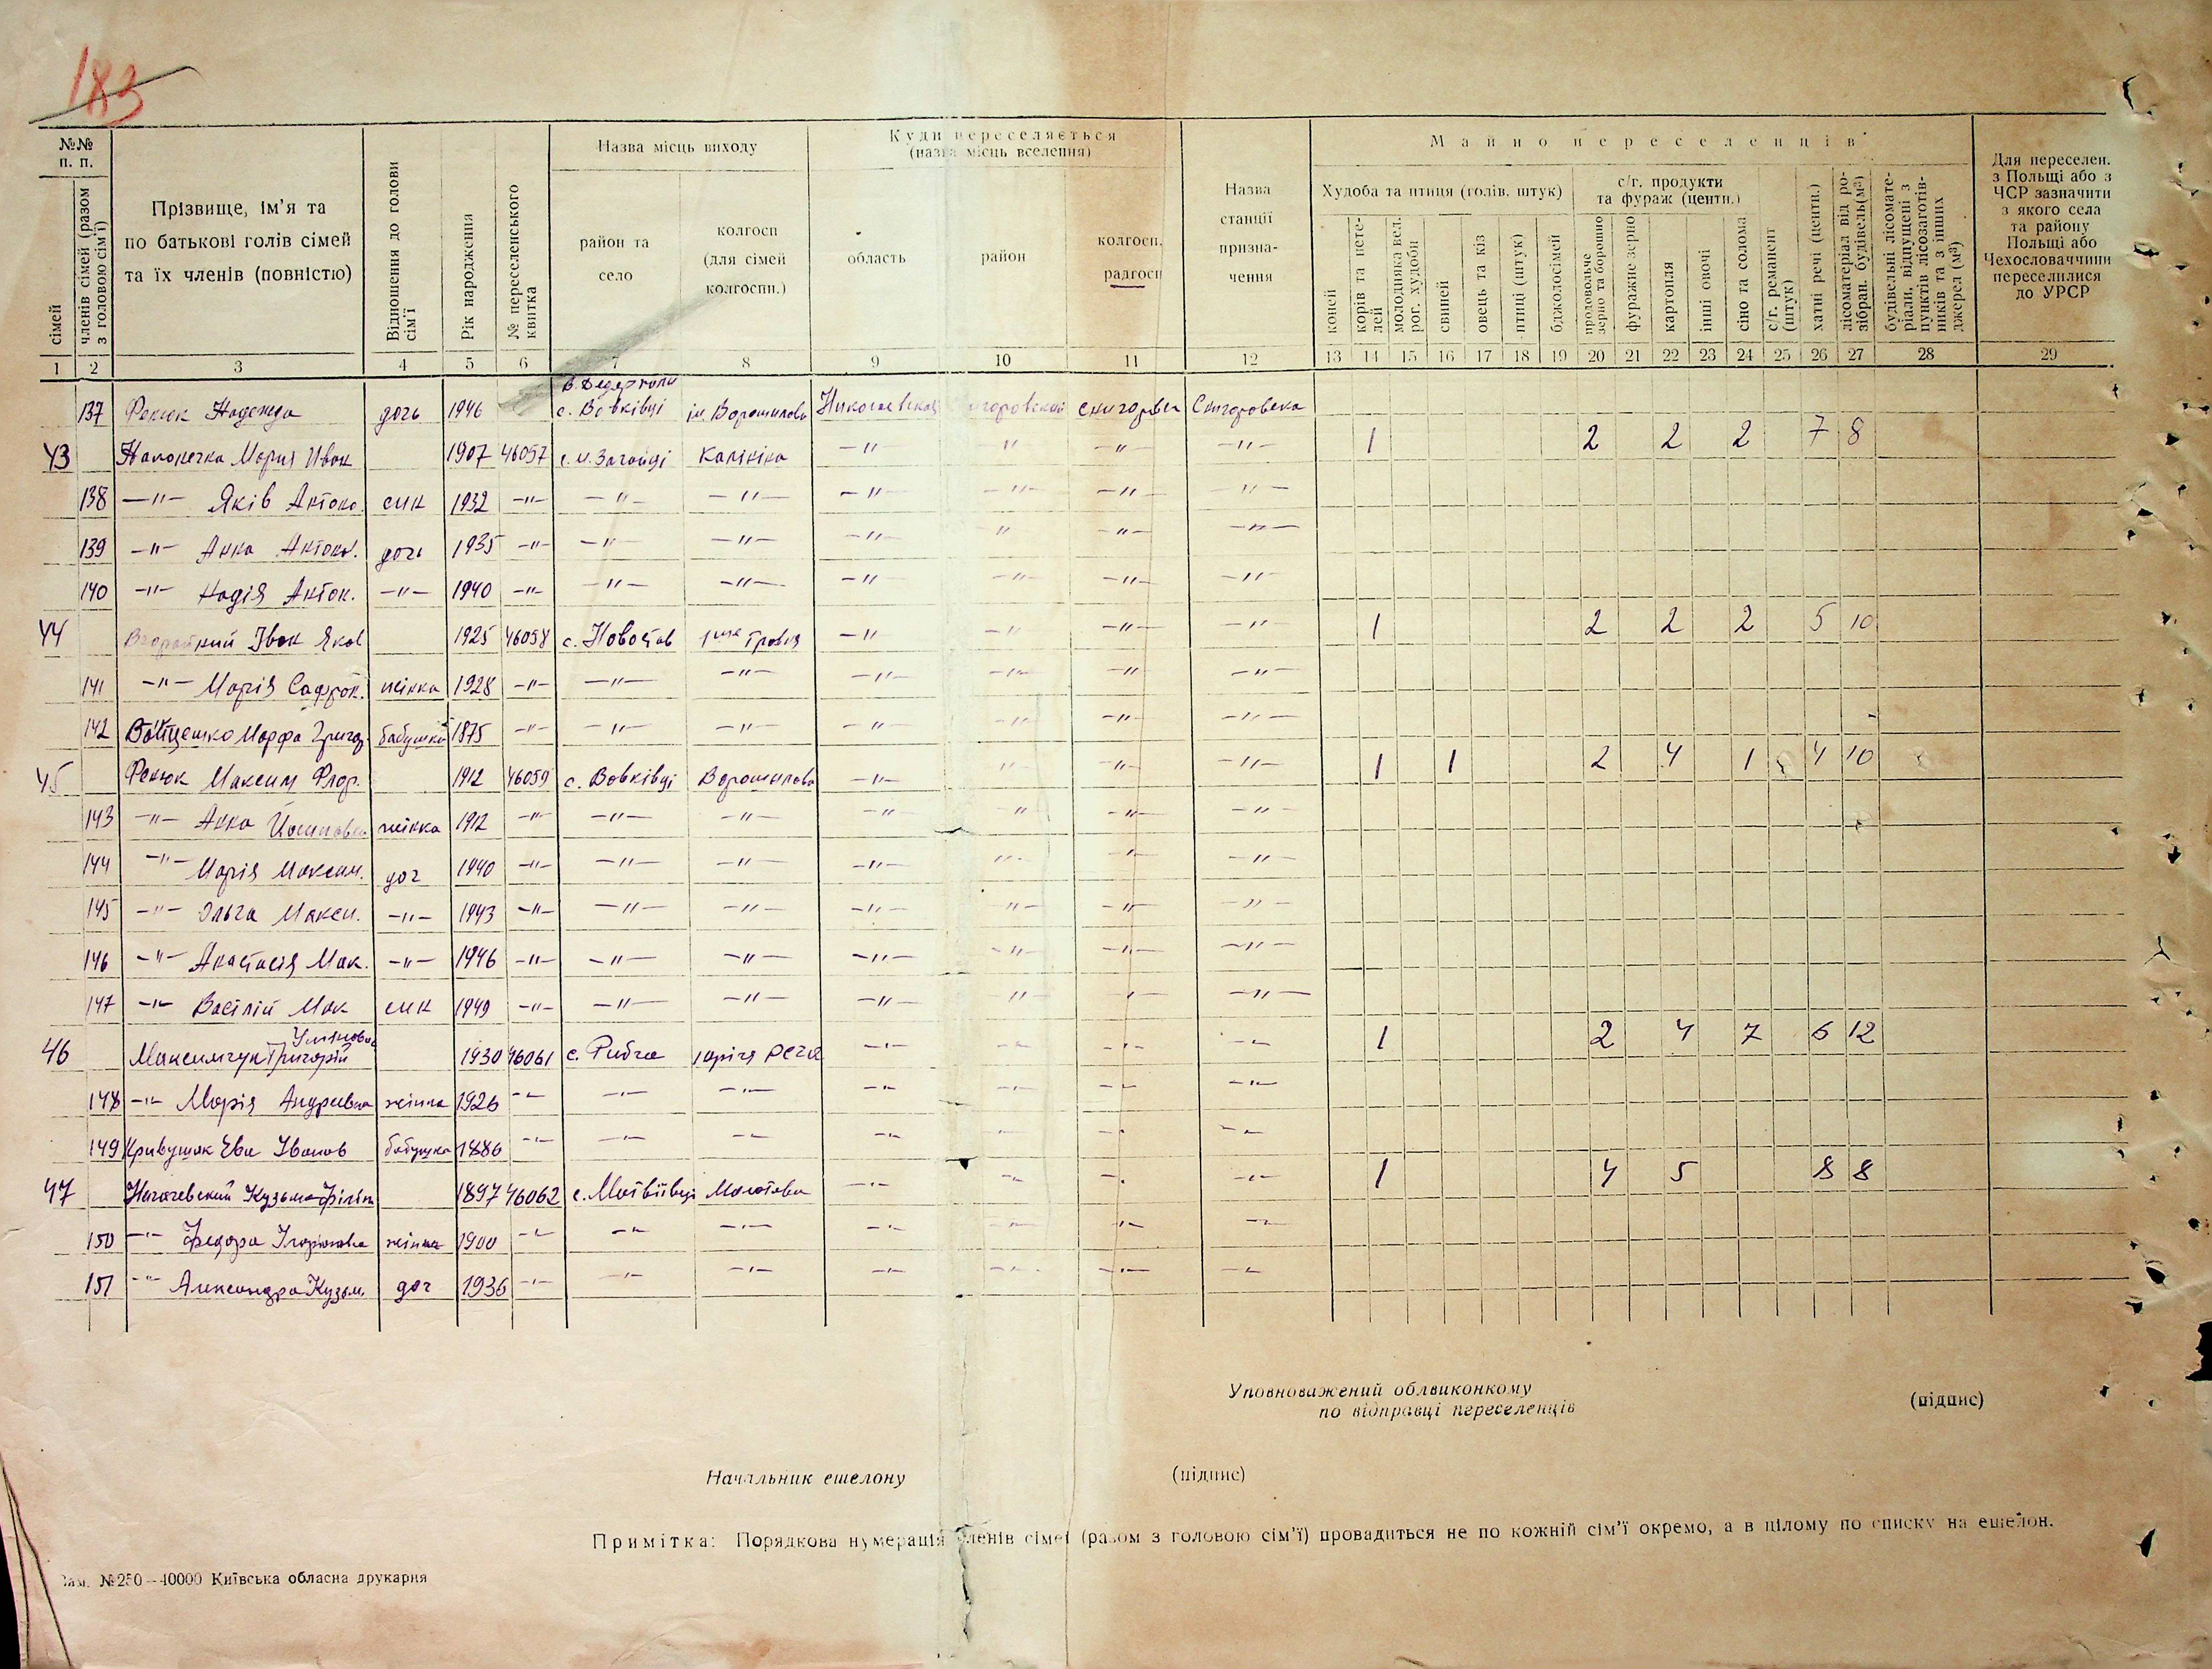 183
№№ п. п.
сімей
членів сімей (разом з головою сім'ї)
Прізвище, ім'я та по батькові голів сімей та їх членів (повністю)
Відношення до голови сім'ї
Рік народження
№ переселенського квитка
Назва місць виходу
район та село
колгосп (для сімей колгоспн.)
Куди переселяється (назва місць вселення)
область
район
колгосп, радгосп
Назва станції призначення
Майно переселенців
Худоба та птиця (голів, штук)
коней
корів та нетелей
молодняка вел. рог. худоби
свиней
овець та кіз
птиці (штук)
бджолосімей
с/г. продукти та фураж (центн.)
продовольче зерно та борошно
фуражне зерно
картопля
інші овочі
сіно та солома
с/г. реманент (штук)
хатні речі (центн.)
лісоматеріал від розібран. будівель (м³)
будівельні лісоматеріали, відпущені з пунктів лісозаготівників та з інших джерел (м³)
Для переселен. з Польщі або з ЧСР зазначити з якого села та району Польщі або Чехословаччини переселилися до УРСР
1 2 3 4 5 6 7 8 9 10 11 12 13 14 15 16 17 18 19 20 21 22 23 24 25 26 27 28 29
137 Фенюк Надежда дочь 1946 В. Дедеркали с. Вовківці ім. Ворошилова
43 Мария Иван 1907 46057 Калініна —"— " —"— —"— 1 2 2 2 7 8
138 —"— Яків Антоно. син 1932 —"— —"— —"— —"— —"— —"— —"—
139 —"— Анна Антонов. дочь 1935 —"— —"— —"— —"— " —"— —"—
140 —"— Надія Антон. —"— 1940 —"— —"— —"— —"— —"— —"— —"—
44 Івон Яков 1925 46058 с. Новостав —"— —"— —"— —"— 1 2 2 2 5 10
141 —"— Марія Сафрон. жінка 1928 —"— —"— —"— —"— —"— —"— —"—
142 Марфа Григор. бабушка 1875 —"— —"— —"— —"— —"— —"— —"—
45 Фенюк Максим Флор. 1912 46059 с. Вовківці Ворошилова —"— —"— —"— —"— 1 1 2 4 1 4 10
143 —"— Анна Йосиповна жінка 1912 —"— —"— —"— —"— " —"— —"—
144 —"— Марія Максим. доч 1940 —"— —"— —"— —"— —"— —"— —"—
145 —"— Ольга Максим. —"— 1943 —"— —"— —"— —"— —"— —"— —"—
146 —"— Анастасія Мак. —"— 1946 —"— —"— —"— —"— —"— —"— —"—
147 —"— Васілій Мак син 1949 —"— —"— —"— —"— —"— —"— —"—
46 Максимчук Григорій 1930 46061 с. Рибча —"— —"— —"— —"— 1 2 4 7 6 12
148 —"— Марія Андреевна жінка 1926 —"— —"— —"— —"— —"— —"— —"—
149 Ева Іванов бабушка 1886 —"— —"— —"— —"— —"— —"— —"—
47 Кузьма Філіп 1897 46062 с. Матвіївці Молотова —"— —"— —"— —"— 1 4 5 8 8
150 —"— Федора жінка 1900 —"— —"— —"— —"— —"— —"— —"—
151 —"— Александра Кузьм. доч 1936 —"— —"— —"— —"— —"— —"— —"—
Уповноважений облвиконкому
по відправці переселенців (підпис)
Начальник ешелону (підпис)
Примітка: Порядкова нумерація членів сімей (разом з головою сім'ї) провадиться не по кожній сім'ї окремо, а в цілому по списку на ешелон.
Зам. №250—40000 Київська обласна друкарня